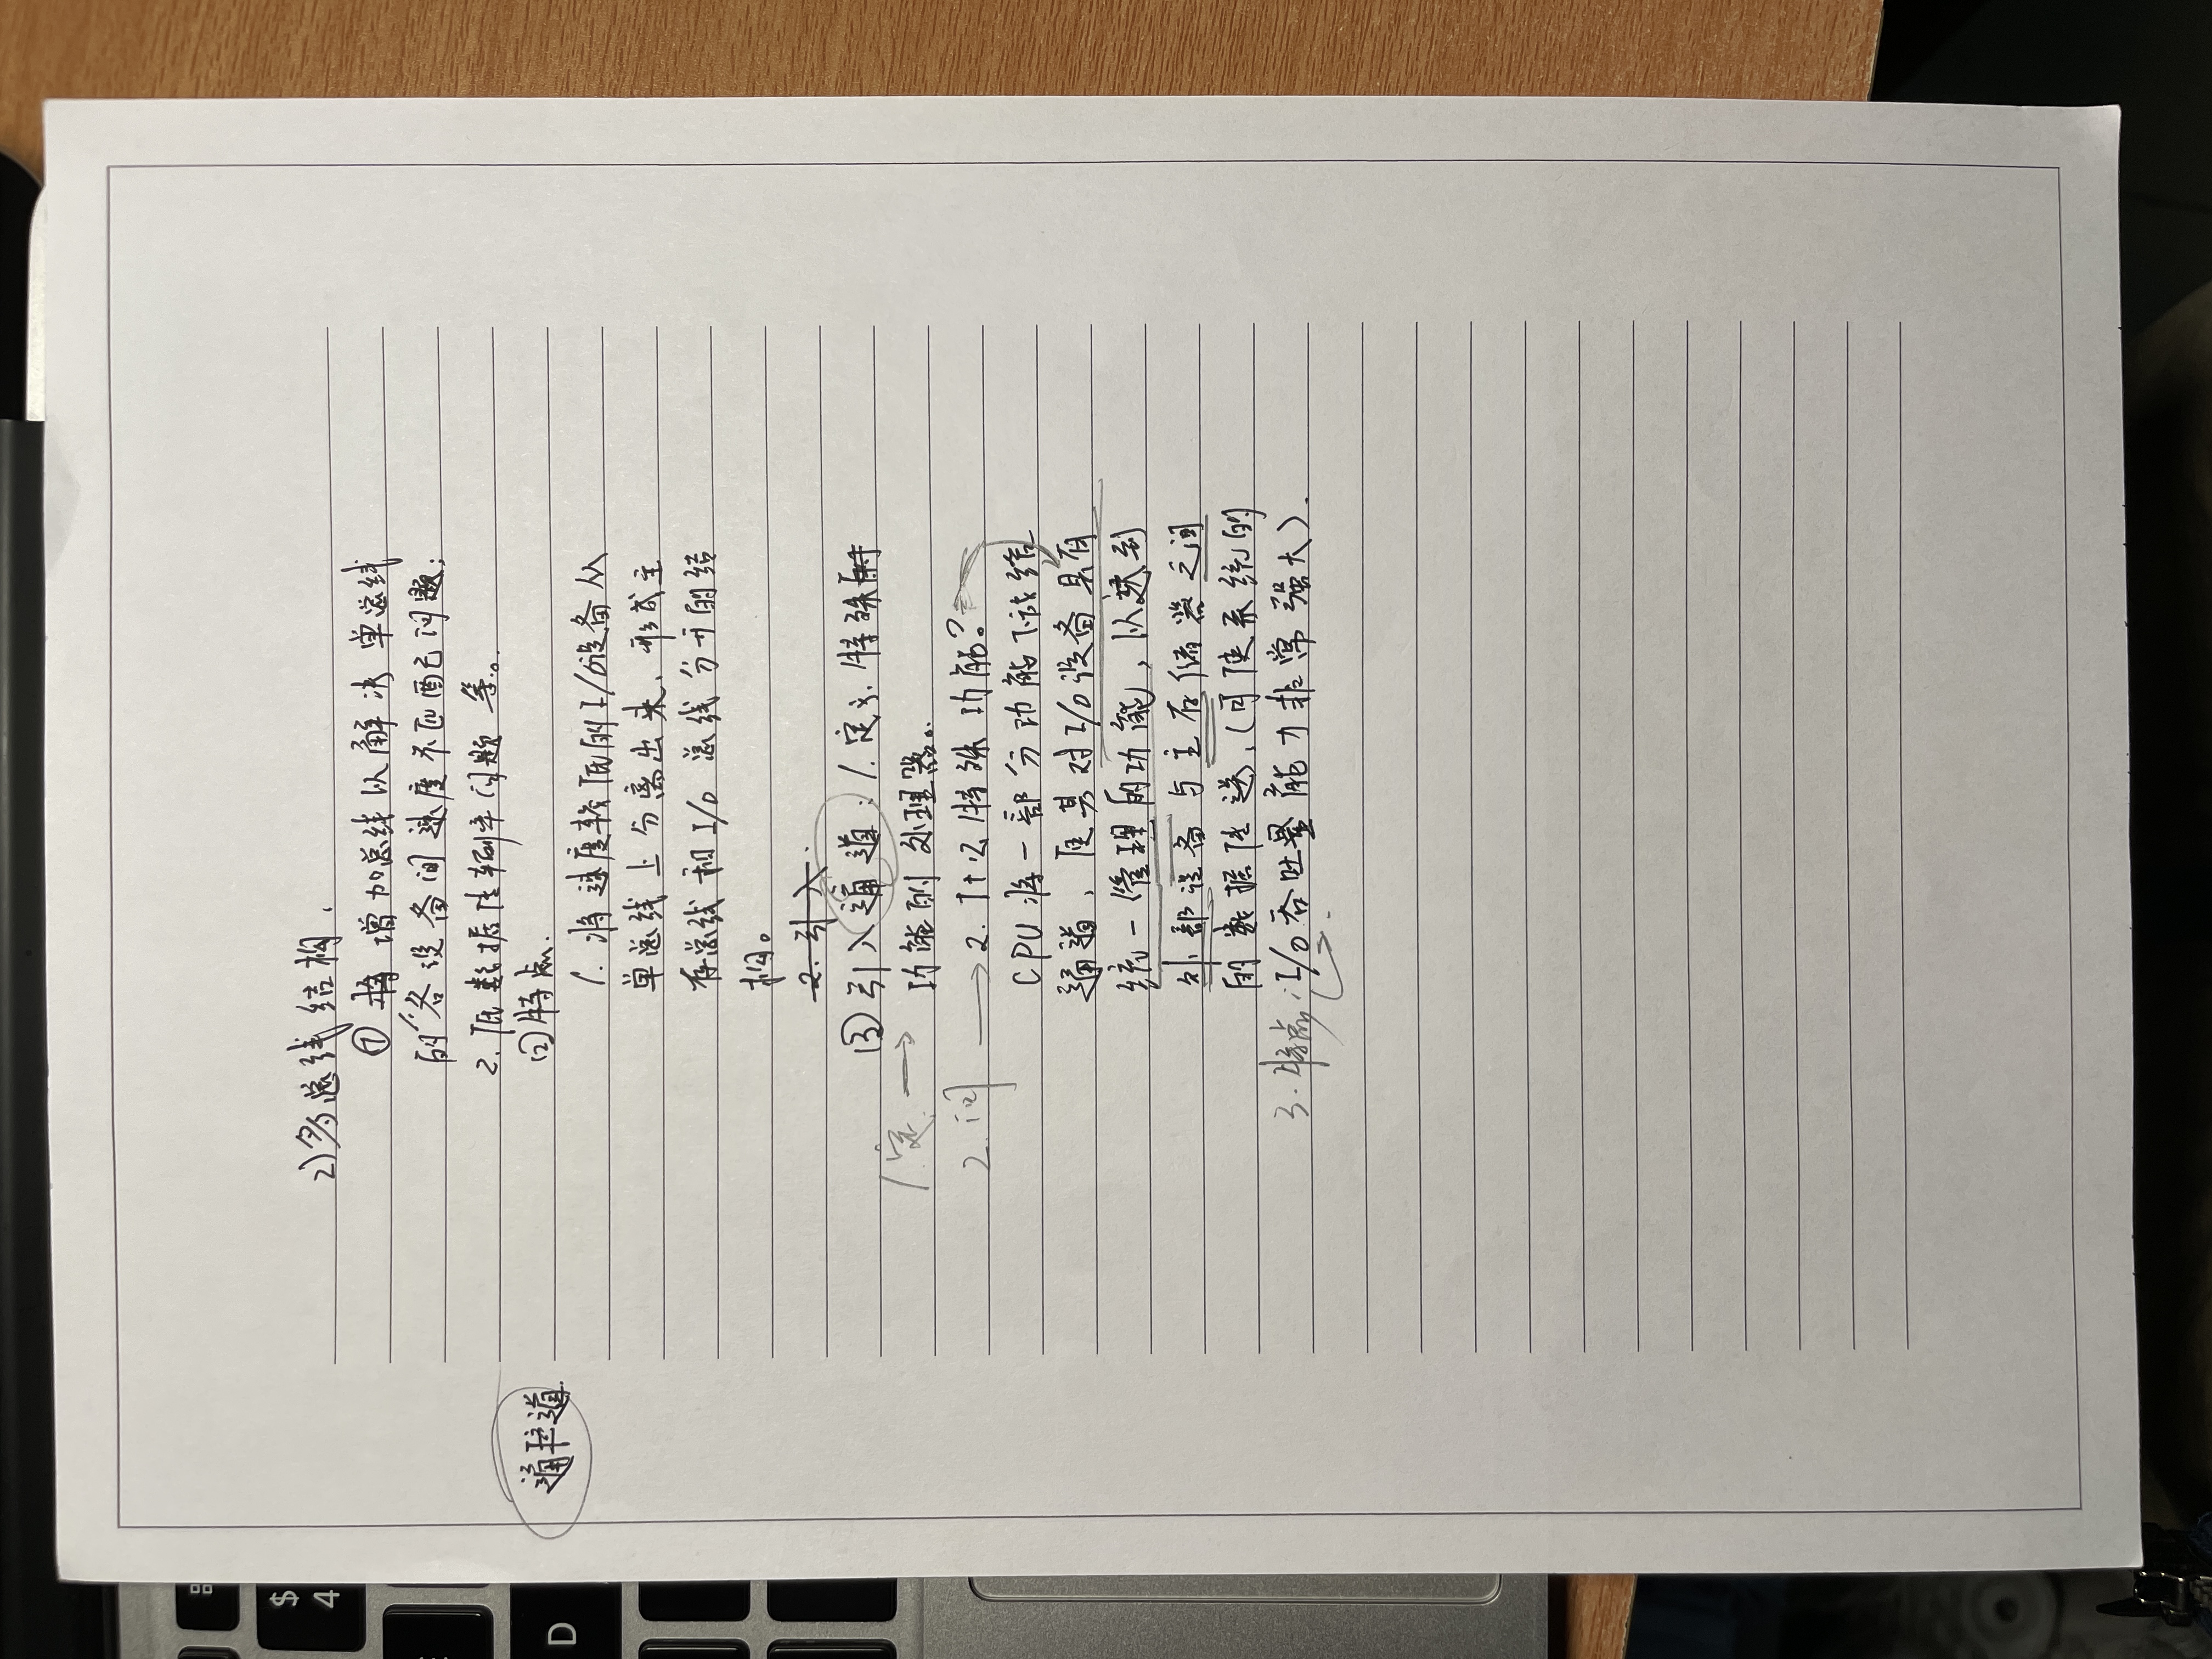 $
4
D
2)多总线结构.
① 将 增加总线以解决单总线
的 1.各设备间速度不匹配问题;
2. 低数据传输率问题 等。
通控道.
② 特点.
1. 将速度较低的I/O设备从
单总线上分离出来, 形成主
存总线和I/O 总线分开的结
构。
2. 引入.
③ 引入通道: 1. 定义. 特殊
1.定 → 功能的处理器。
2.问 → 2. 什么特殊功能?
CPU将一部分功能下放给
通道, 使其对I/O设备具有
统一管理的功能, 以达到
外部设备与主存储器之间
的数据传送, (可使系统的
3. 特点: I/O吞吐量能力非常强大).